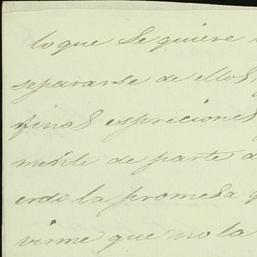 lo que se quiere
separarse de ellos
finas espreciones
mente de parte d
erdo la promesa q
virme que no la